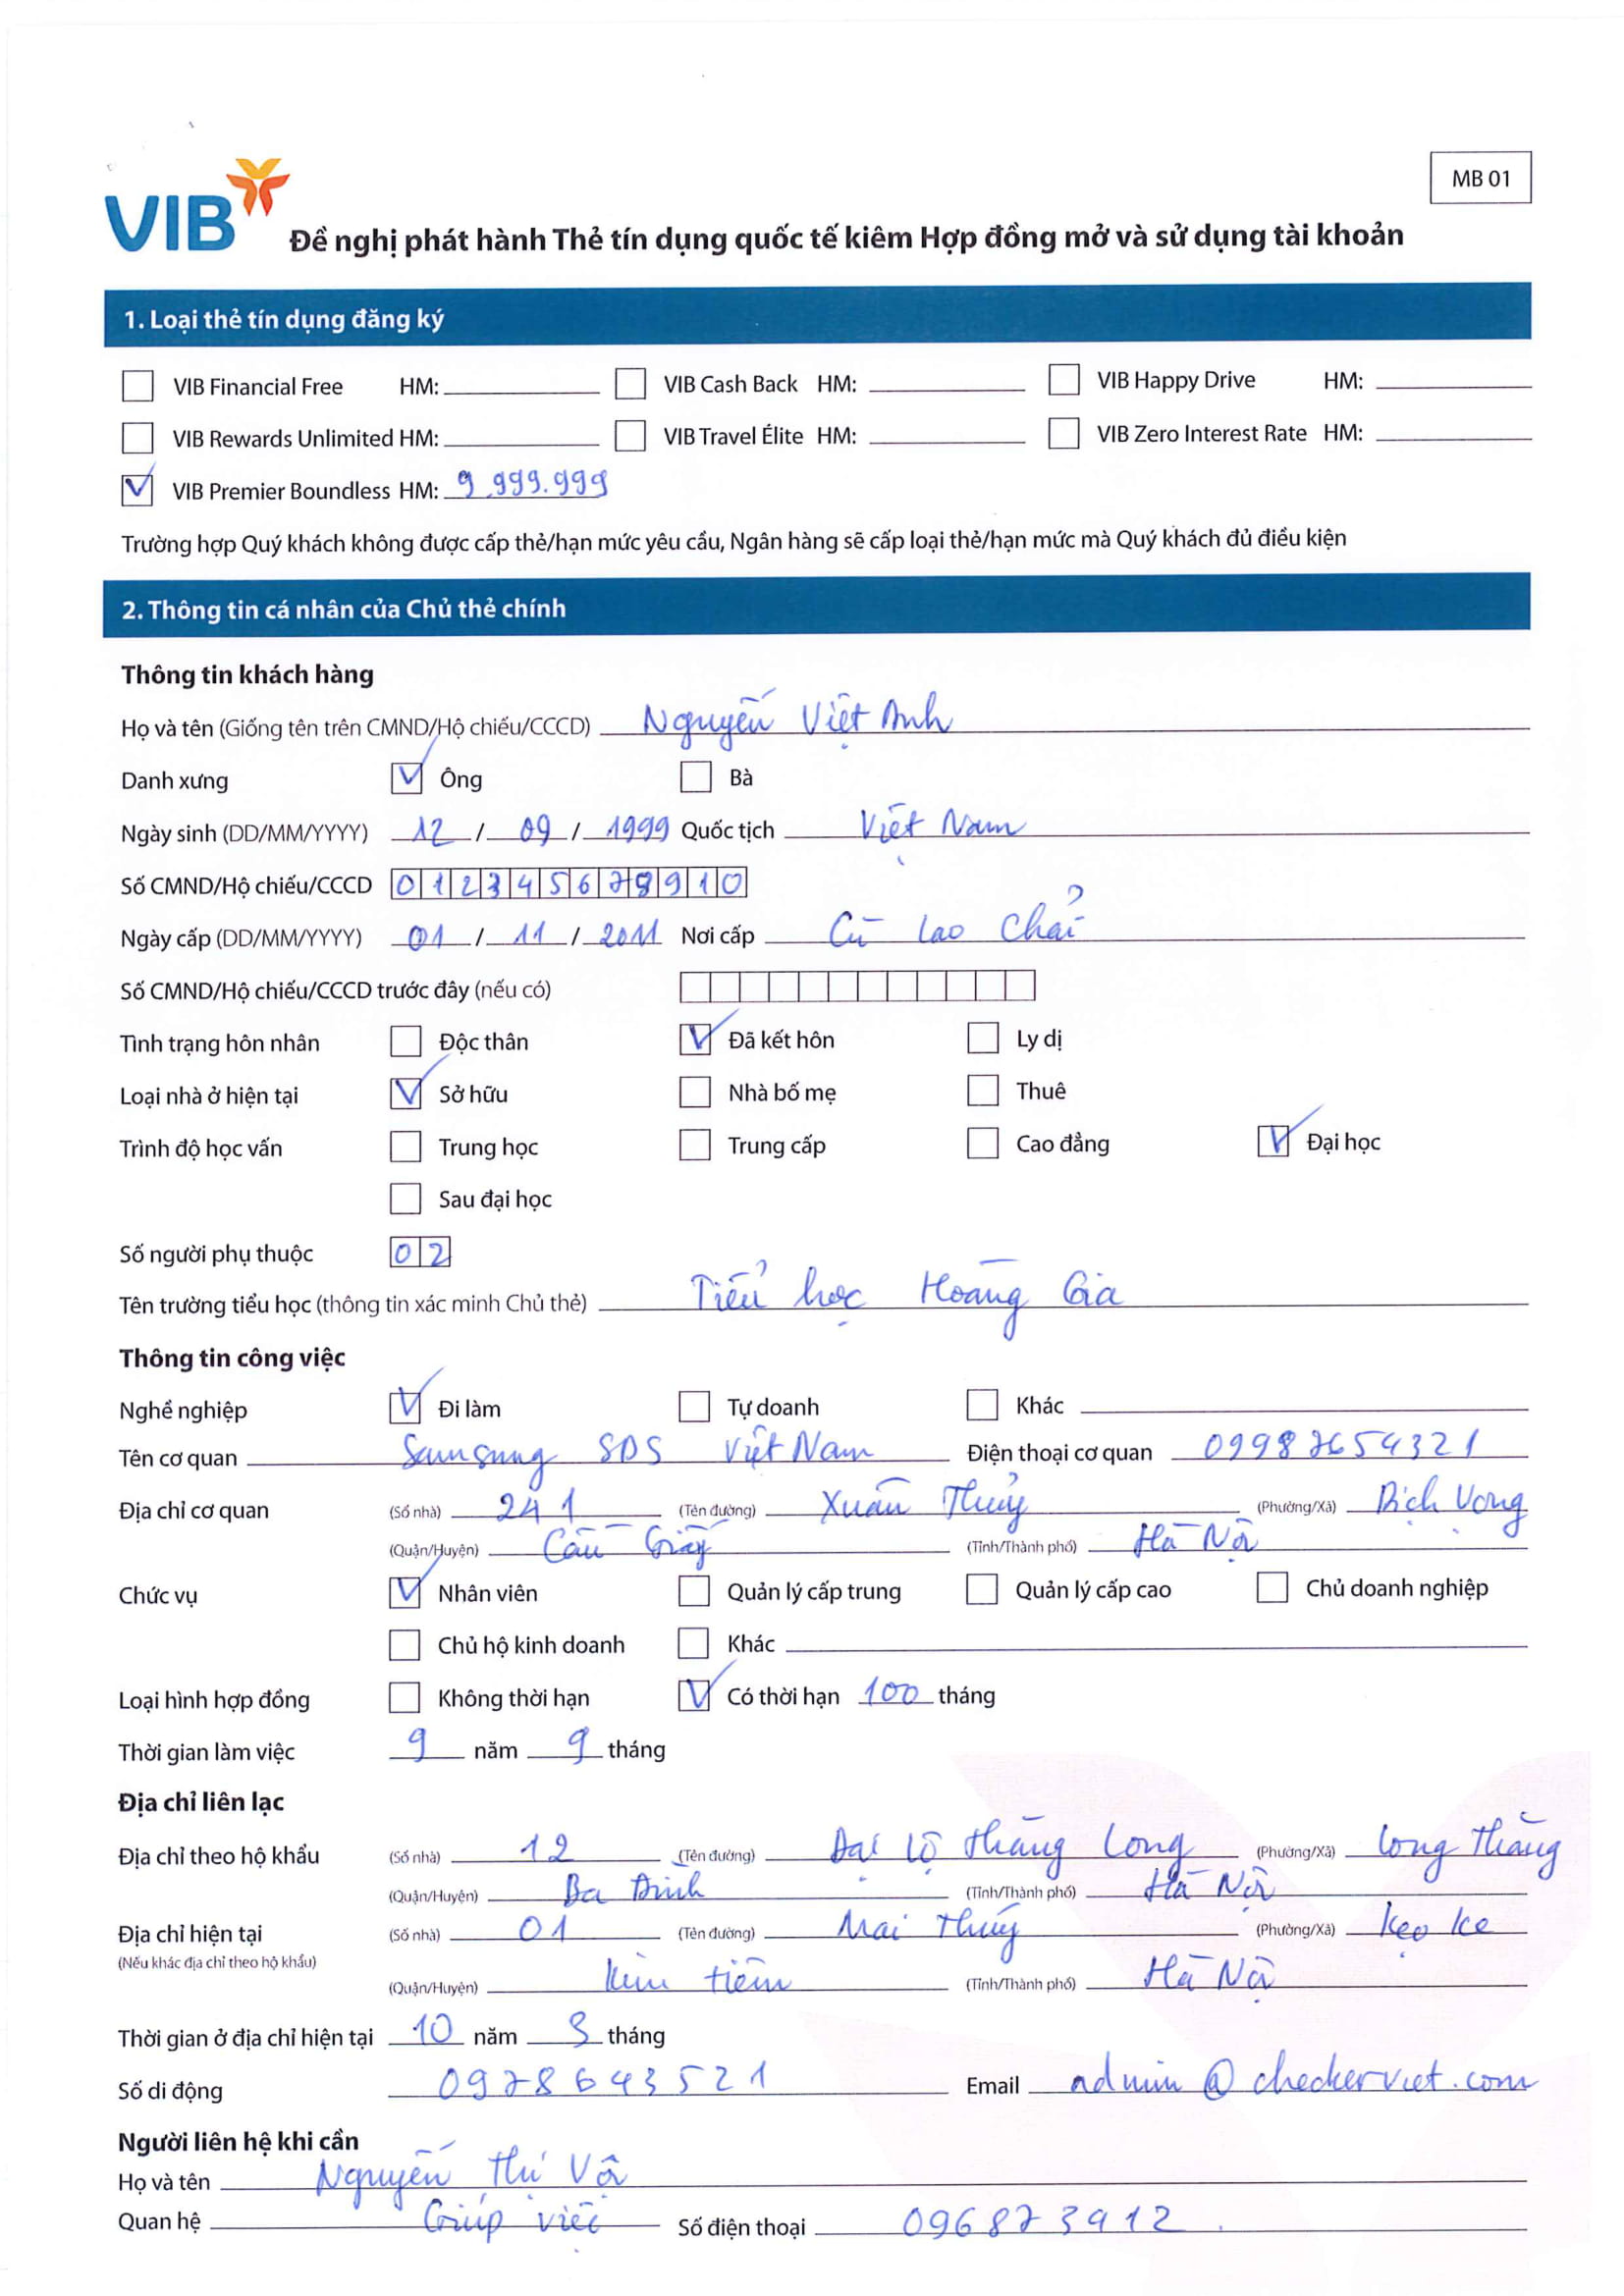 MB 01
VIB
Đề nghị phát hành Thẻ tín dụng quốc tế kiêm Hợp đồng mở và sử dụng tài khoản
1. Loại thẻ tín dụng đăng ký
VIB Financial Free HM: VIB Cash Back HM: VIB Happy Drive HM:
VIB Rewards Unlimited HM: VIB Travel Élite HM: VIB Zero Interest Rate HM:
VIB Premier Boundless HM: 9.999.999
Trường hợp Quý khách không được cấp thẻ/hạn mức yêu cầu, Ngân hàng sẽ cấp loại thẻ/hạn mức mà Quý khách đủ điều kiện
2. Thông tin cá nhân của Chủ thẻ chính
Thông tin khách hàng
Họ và tên (Giống tên trên CMND/Hộ chiếu/CCCD) Nguyễn Việt Anh
Danh xưng Ông Bà
Ngày sinh (DD/MM/YYYY) 12 / 09 / 1999 Quốc tịch Việt Nam
Số CMND/Hộ chiếu/CCCD 012345678910
Ngày cấp (DD/MM/YYYY) 01 / 11 / 2011 Nơi cấp Cù Lao Chải
Số CMND/Hộ chiếu/CCCD trước đây (nếu có)
Tình trạng hôn nhân Độc thân Đã kết hôn Ly dị
Loại nhà ở hiện tại Sở hữu Nhà bố mẹ Thuê
Trình độ học vấn Trung học Trung cấp Cao đẳng Đại học
Sau đại học
Số người phụ thuộc 02
Tên trường tiểu học (thông tin xác minh Chủ thẻ) Tiểu học Hoàng Gia
Thông tin công việc
Nghề nghiệp Đi làm Tự doanh Khác
Tên cơ quan Samsung SDS Việt Nam Điện thoại cơ quan 09987654321
Địa chỉ cơ quan (Số nhà) 241 (Tên đường) Xuân Thủy (Phường/Xã) Dịch Vọng
(Quận/Huyện) Cầu Giấy (Tỉnh/Thành phố) Hà Nội
Chức vụ Nhân viên Quản lý cấp trung Quản lý cấp cao Chủ doanh nghiệp
Chủ hộ kinh doanh Khác
Loại hình hợp đồng Không thời hạn Có thời hạn 100 tháng
Thời gian làm việc 9 năm 9 tháng
Địa chỉ liên lạc
Địa chỉ theo hộ khẩu (Số nhà) 12 (Tên đường) Đại lộ Thăng Long (Phường/Xã) Long Thăng
(Quận/Huyện) Ba Đình (Tỉnh/Thành phố) Hà Nội
Địa chỉ hiện tại (Số nhà) 01 (Tên đường) Mai Thúy (Phường/Xã) Kẹo Ke
(Nếu khác địa chỉ theo hộ khẩu)
(Quận/Huyện) Kim tiêm (Tỉnh/Thành phố) Hà Nội
Thời gian ở địa chỉ hiện tại 10 năm 3 tháng
Số di động 0978643521 Email admin@checkerviet.com
Người liên hệ khi cần
Họ và tên Nguyễn Thị Vội
Quan hệ Giúp việc Số điện thoại 096873912